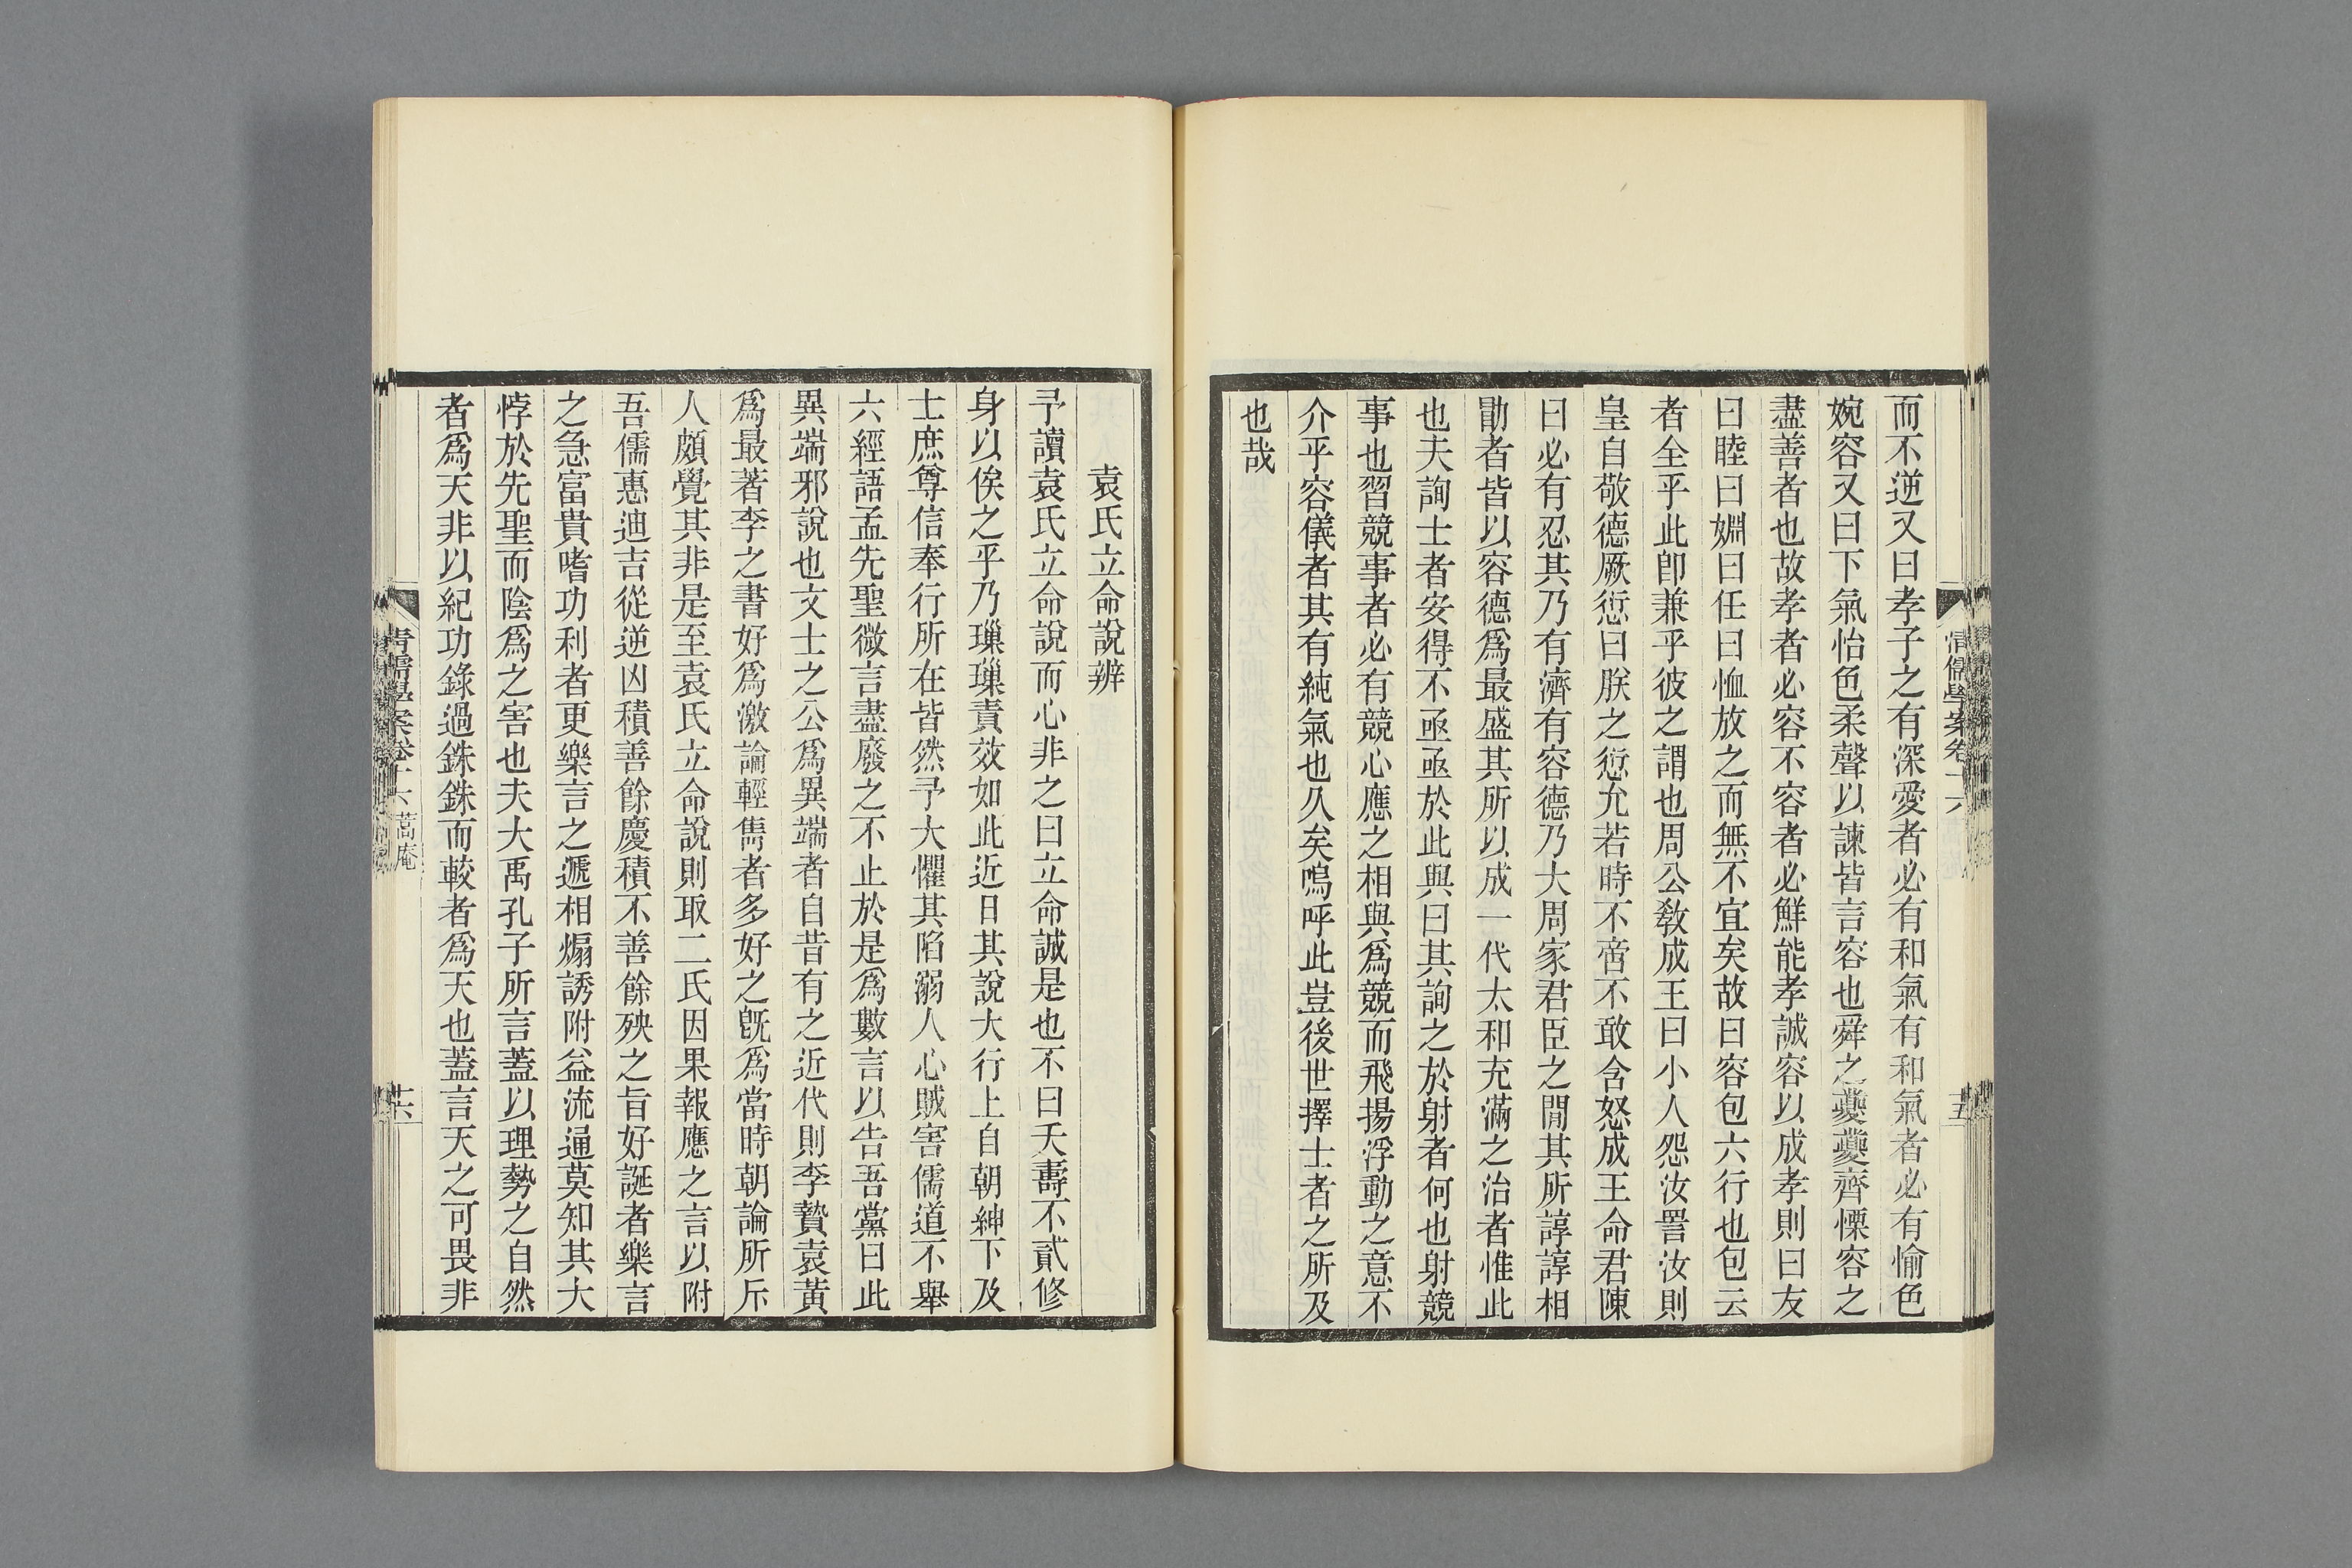 而不逆又曰孝子之有深愛者必有和氣有和氣者必有愉色
婉容又曰下氣怡色柔聲以諫皆言容也舜之夔夔齊慄容之
盡善者也故孝者必容不容者必鮮能孝誠容以成孝則曰友
曰睦曰婣曰任曰恤放之而無不宜矣故曰容包六行也包云
者全乎此卽兼乎彼之謂也周公敎成王曰小人怨汝詈汝則
皇自敬德厥愆曰朕之愆允若時不啻不敢含怒成王命君陳
曰必有忍其乃有濟有容德乃大周家君臣之閒其所諄諄相
勖者皆以容德爲最盛其所以成一代太和充滿之治者惟此
也夫詢士者安得不亟亟於此與曰其詢之於射者何也射競
事也習競事者必有競心應之相與爲競而飛揚浮動之意不
介乎容儀者其有純氣也久矣嗚呼此豈後世擇士者之所及
也哉
清儒學案卷十六
袁氏立命說辨
予讀袁氏立命說而心非之曰立命誠是也不曰夭壽不貳修
身以俟之乎乃璅璅責效如此近日其說大行上自朝紳下及
士庶尊信奉行所在皆然予大懼其陷溺人心賊害儒道不舉
六經語孟先聖微言盡廢之不止於是爲數言以告吾黨曰此
異端邪說也文士之公爲異端者自昔有之近代則李贄袁黃
爲最著李之書好爲激論輕雋者多好之旣爲當時朝論所斥
人頗覺其非是至袁氏立命說則取二氏因果報應之言以附
吾儒惠迪吉從逆凶積善餘慶積不善餘殃之旨好誕者樂言
之急富貴嗜功利者更樂言之遞相煽誘附益流通莫知其大
悖於先聖而陰爲之害也夫大禹孔子所言蓋以理勢之自然
者爲天非以紀功錄過銖銖而較者爲天也蓋言天之可畏非
清儒學案卷十六 蒿庵